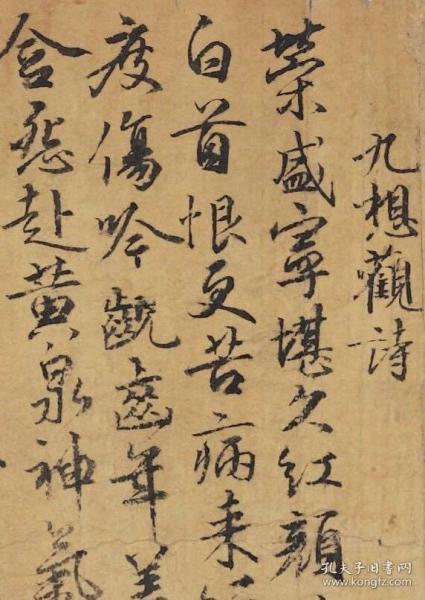 九想觀詩
榮盛寧堪久紅顏
白首恨更苦病来
度傷吟齒年
含怨赴黄泉神氣
孔夫子旧书网
www.kongfz.com